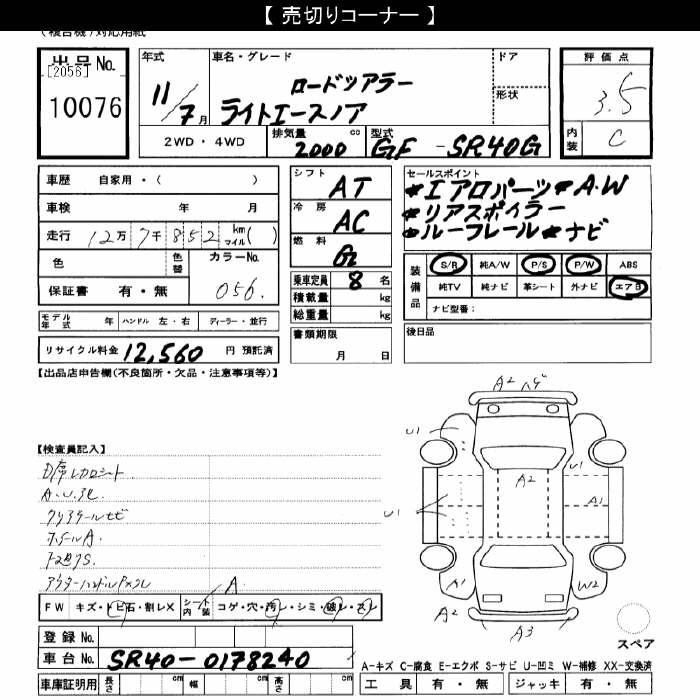 【 売切りコーナー 】
(複合機)対応用紙
出品No. [2056] 10076
年式 11/7月
車名・グレード ロードツアラー
ライトエースノア
ドア
形状
評価点 3.5
内装 C
2WD・4WD 排気量 cc 2000 型式 GF-SR40G
車歴 自家用・( )
車検 年 月
走行 12万 7千 852 km マイル( )
色 色替 カラーNo. 056.
保証書 有・無
モデル年式 年 ハンドル 左・右 ディーラー・並行
リサイクル料金 12,560 円 預託済
シフト AT
冷房 AC
燃料 G
乗車定員 8 名
積載量 kg
総重量 kg
書類期限 月 日
セールスポイント
*エアロパーツ*A.W
*リアスポイラー
*ルーフレール*ナビ
装備品 S/R 純A/W P/S P/W ABS
純TV 純ナビ 革シート 外ナビ エアB
ナビ型番:
後日品
【出品店申告欄(不良箇所・欠品・注意事項等)】
【検査員記入】
D席レカロシート
A.U.3ヒ
ホイールA.
A
FW キズ・トビ石・割レX シート内装 コゲ・穴・汚レ・シミ・破レ・スレ
登録No.
車台No. SR40-0178240
車庫証明用 長さ cm 幅 cm 高さ cm
A2 ハゲ
U1
A2
U1
U1
A1
A1
W2
A2
A3
スペア
A-キズ C-腐食 E-エクボ S-サビ U-凹ミ W-補修 XX-交換済
工具 有・無 ジャッキ 有・無